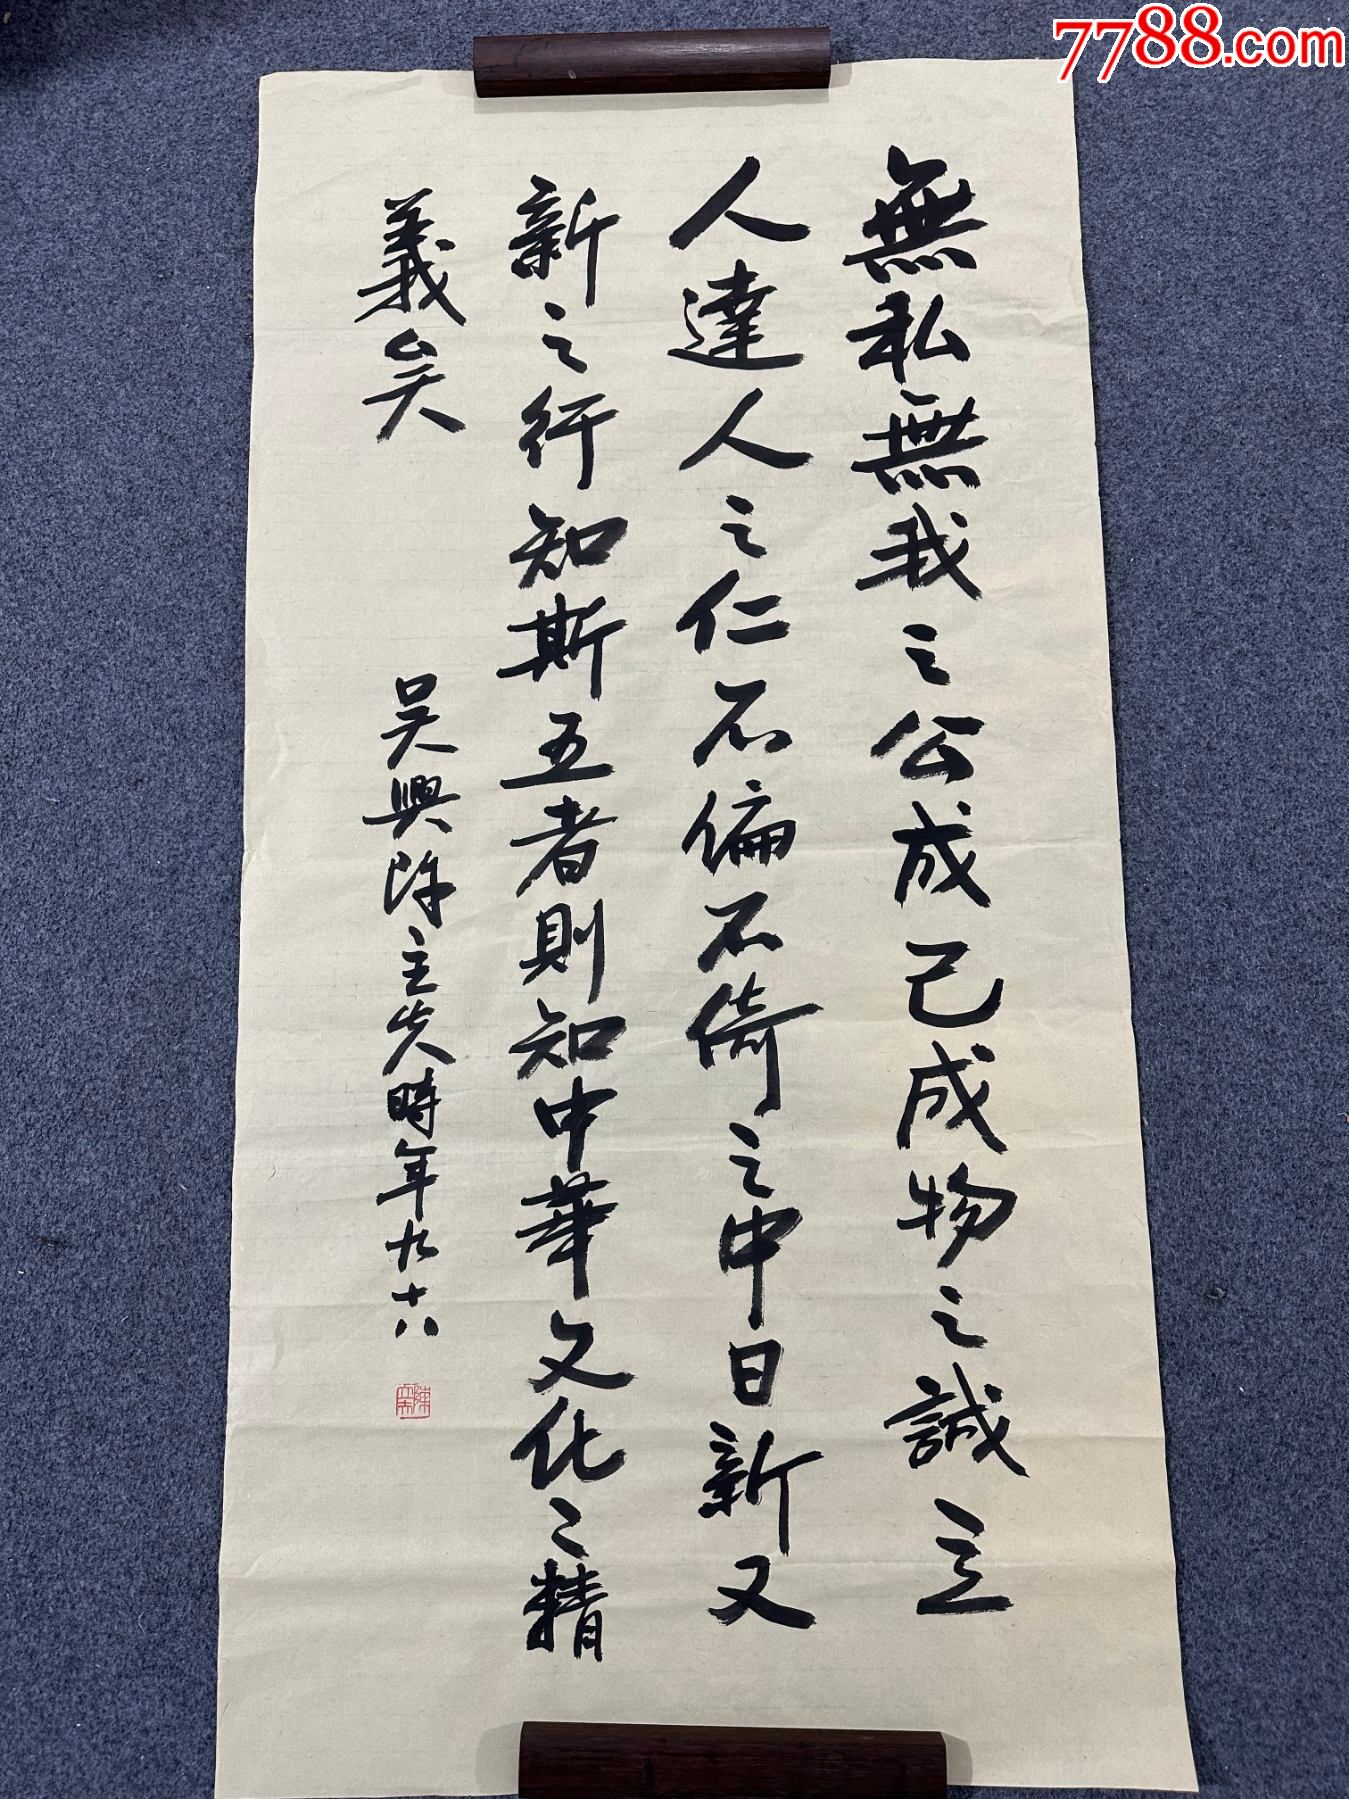 7788.com
無私無我之公成己成物之誠立
人達人之仁不偏不倚之中日新又
新之行知斯五者則知中華文化之精
義矣
吳興陳立夫時年九十八